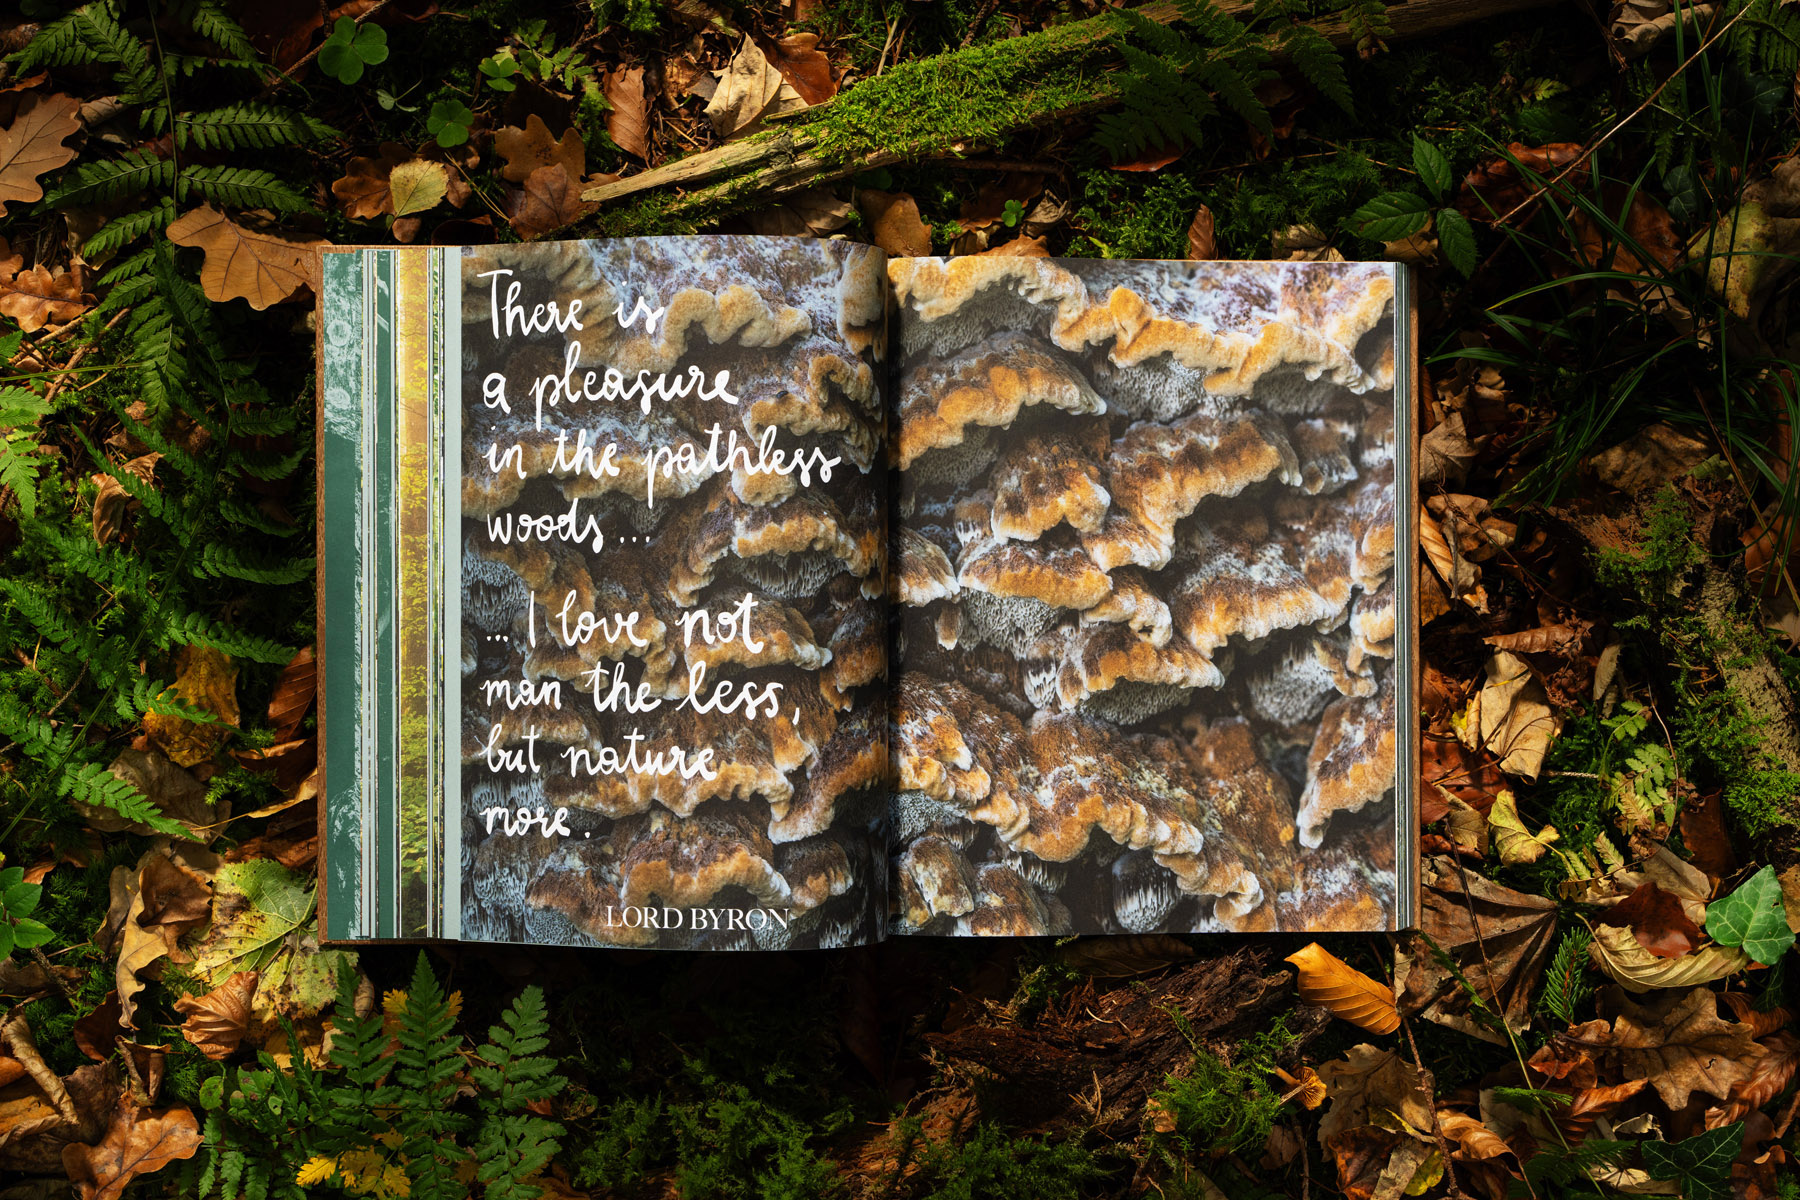 There is
a pleasure
in the pathless
woods...
... I love not
man the less,
but nature
more.
LORD BYRON